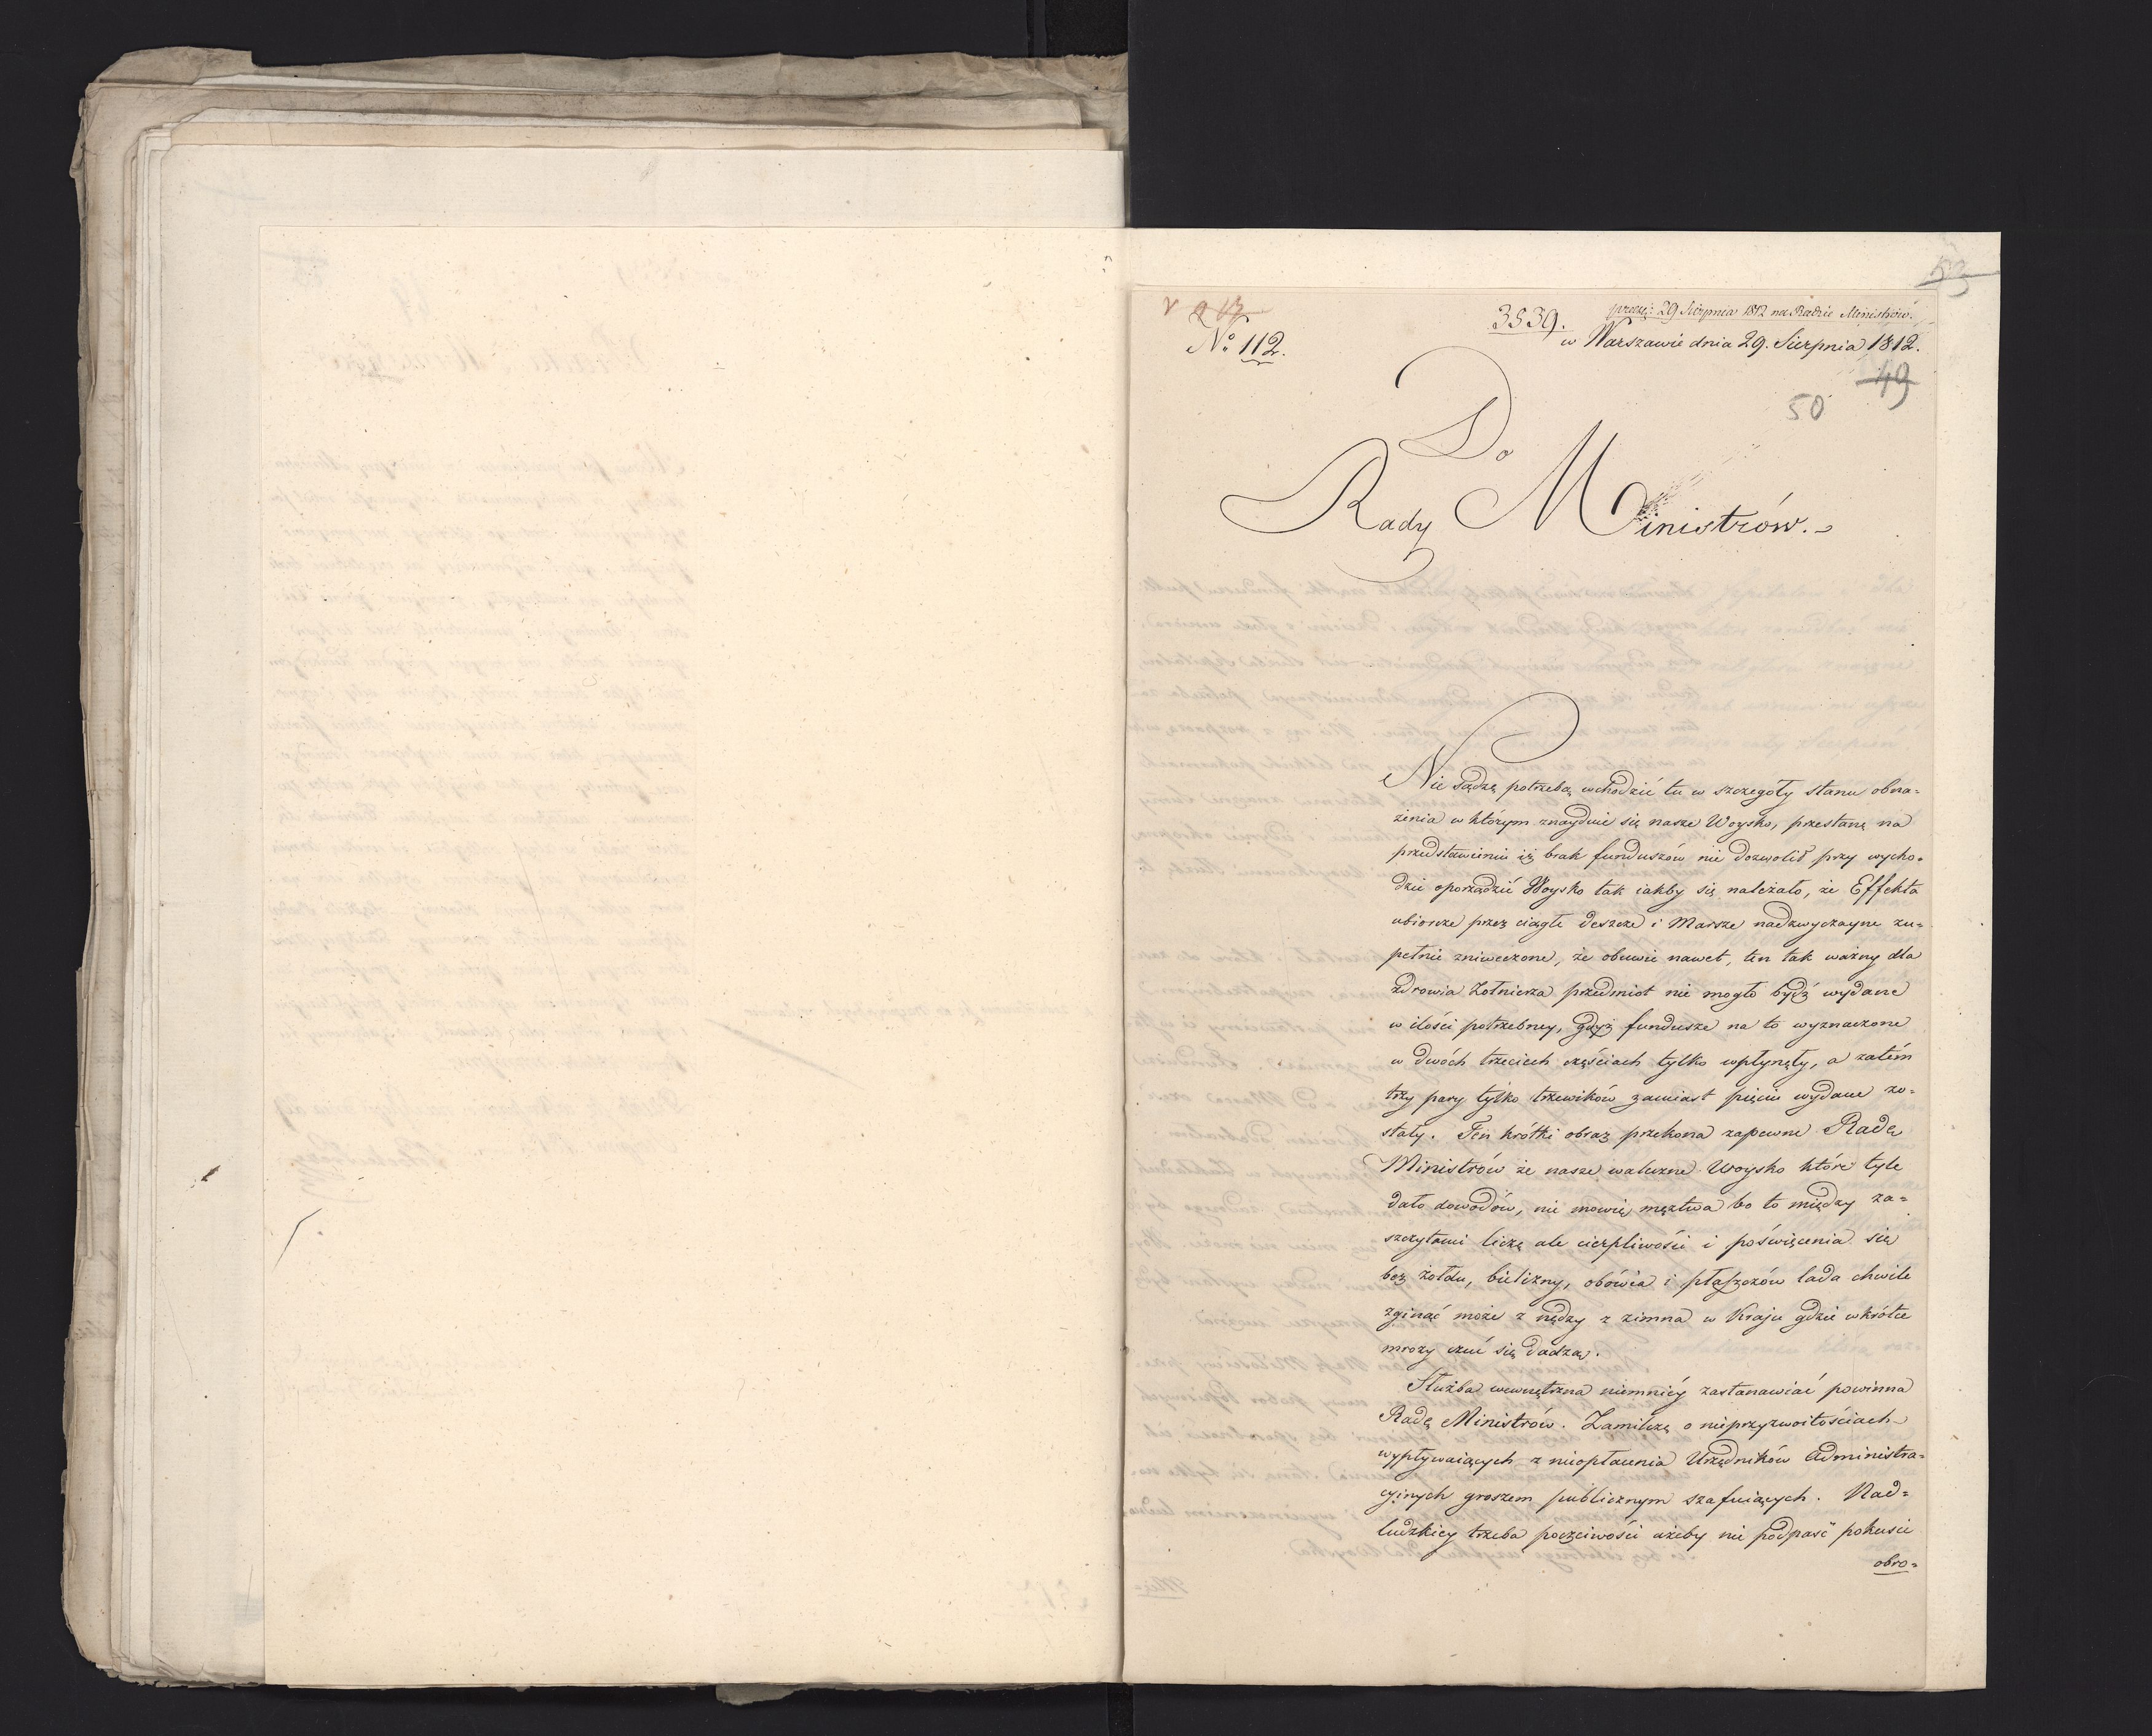 53
v 2 13
3539.
przeczy: 29 Sierpnia 1812 na Radzie Ministrów.
No 112.
w Warszawie dnia 29. Sierpnia 1812.
49
50
Do
Rady Ministrów.
Nie sądzę potrzebą wchodzić tu w szczegóły stanu obna=
żenia w którym znayduie się nasze Woysko, przestanę na
przedstawieniu iż brak funduszów nie dozwolił przy wycho=
dzie oporządzić Woysko tak iakby się należało, że Effekta
ubiorcze przez ciągłe deszcze i Marsze nadzwyczayne zu=
pełnie zniweczone, że obuwie nawet, ten tak ważny dla
zdrowia Żołnierza przedmiot nie mogło bydź wydane
w ilości potrzebney, gdyż fundusze na to wyznaczone
w dwóch trzecich częściach tylko wpłynęły, a zatém
trzy pary tylko trzewików zamiast pięciu wydane zo=
stały. Ten krótki obraz przekona zapewne Radę
Ministrów że nasze waleczne Woysko które tyle
dało dowodów, nie mowię męztwa bo to między za=
szczytami liczę ale cierpliwości i poświęcenia się
bez żołdu, bielizny, obówia i płaszczów lada chwile
zginąć może z nędzy z zimna w Kraju gdzie wkrótce
mrozy czuć się dadzą.
Służba wewnętrzna niemniéy zastanawiać powinna
Radę Ministrów. Zamilczę o nieprzyzwoitościach
wypływaiących z nieopłacenia Urzędników Administra=
cyinych groszem publicznym szafuiących. Nad=
ludzkiey trzeba poczciwości ażeby nie podpaść pokusie
obro=